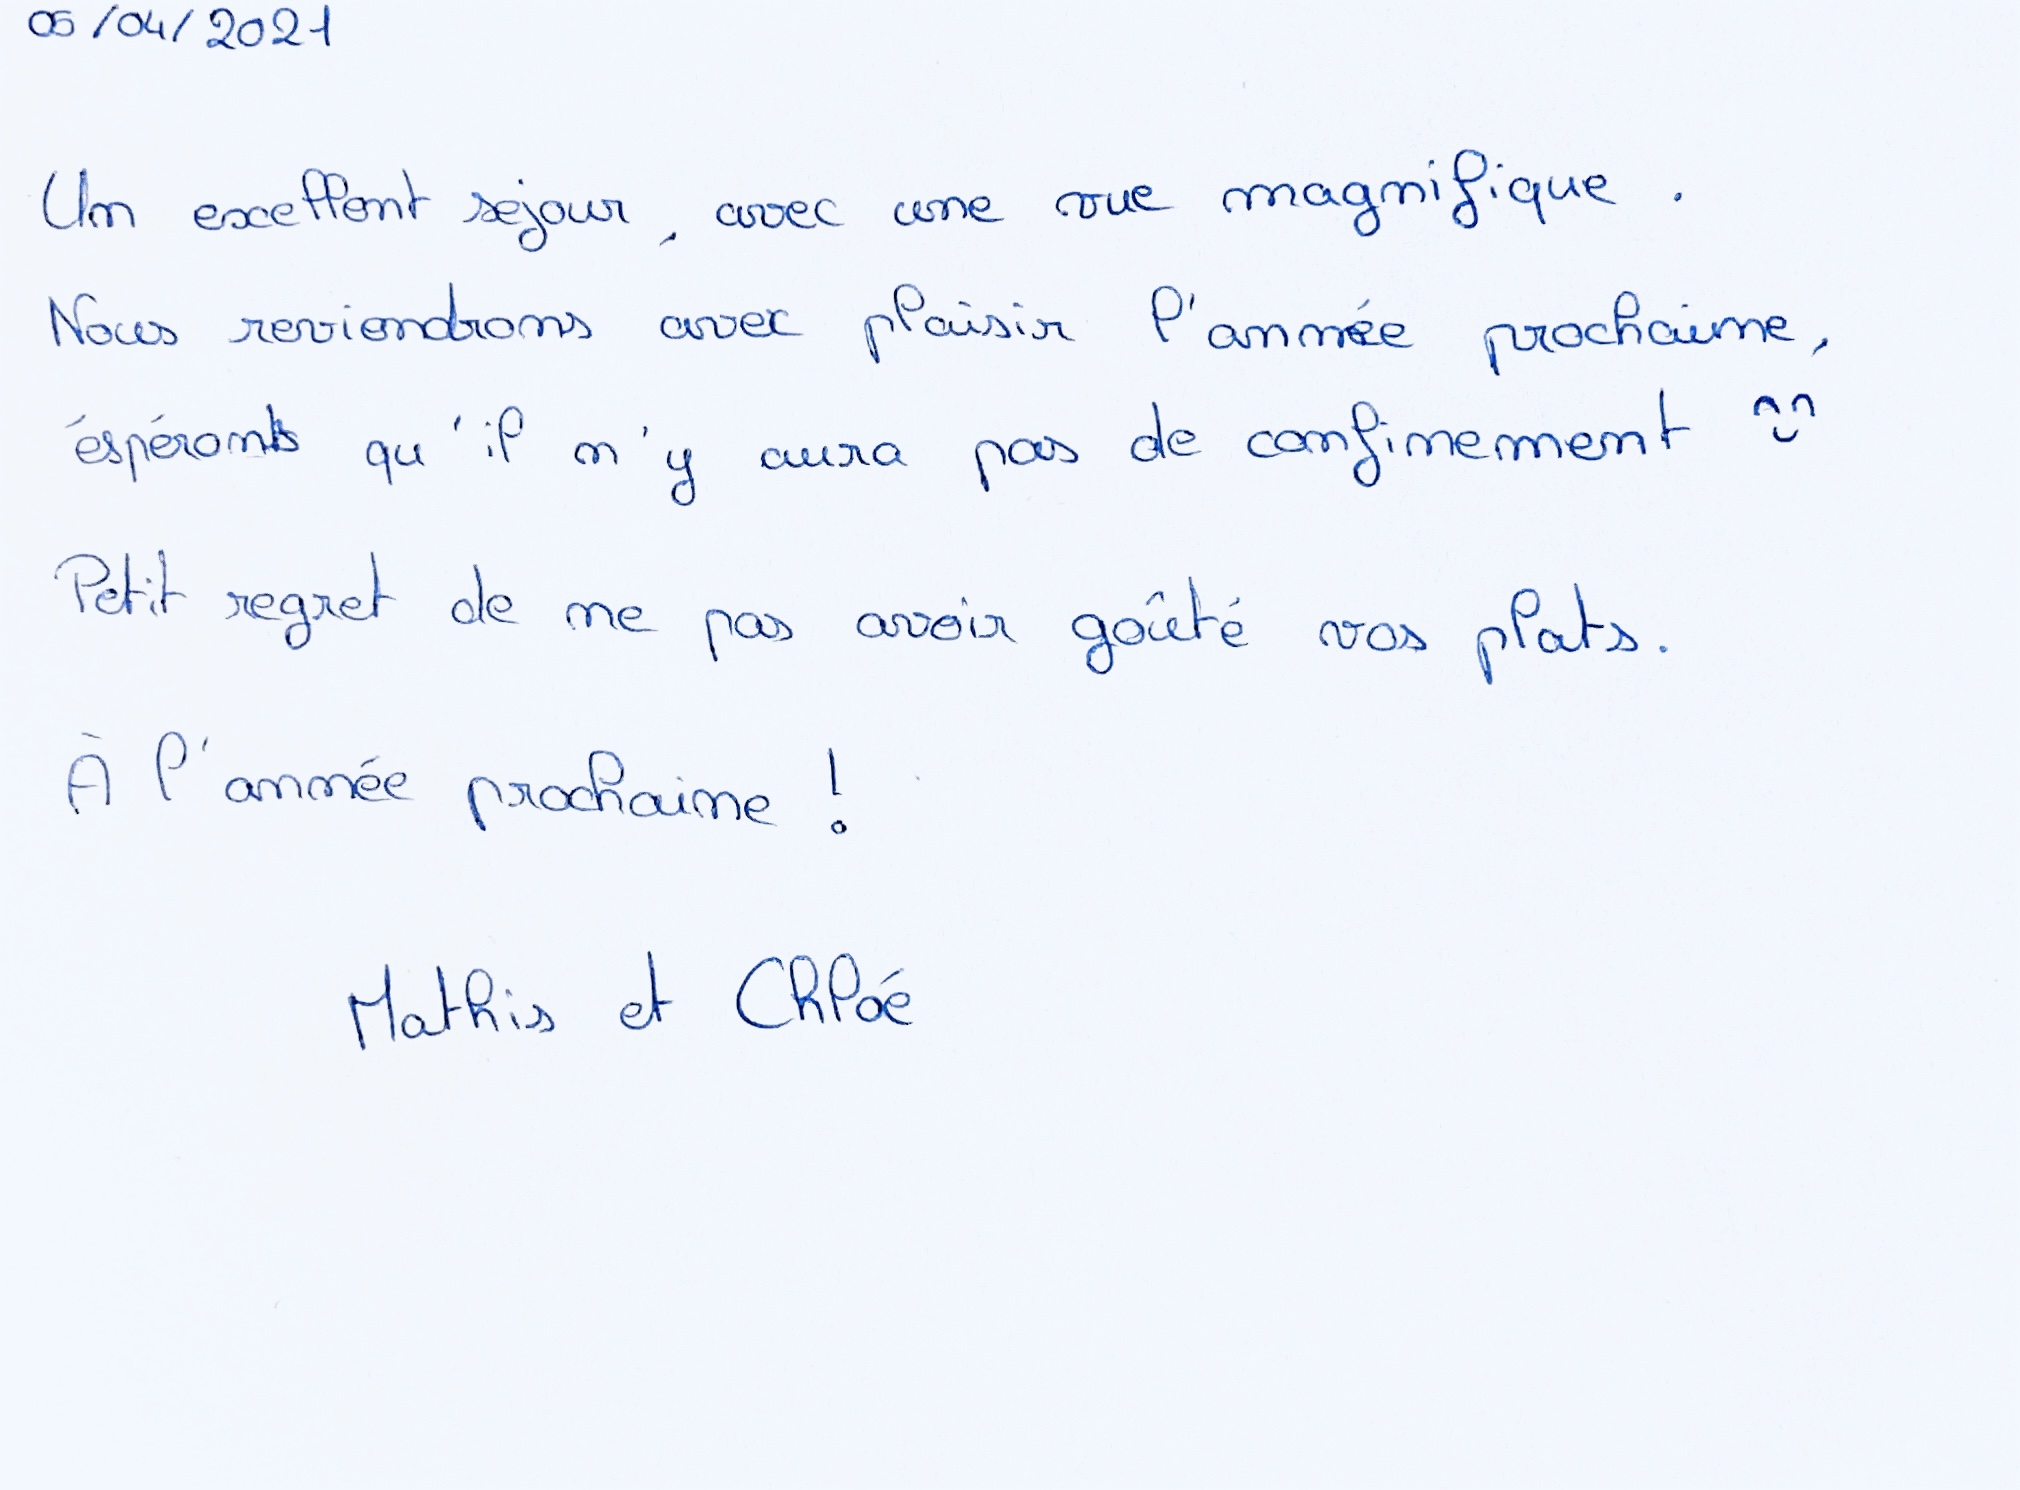 05/04/2021
Un excellent séjour, avec une vue magnifique.
Nous reviendrons avec plaisir l'année prochaine,
éspérons qu'il n'y aura pas de confinement ^^
Petit regret de ne pas avoir goûté vos plats.
À l'année prochaine !
Mathis et Chloé